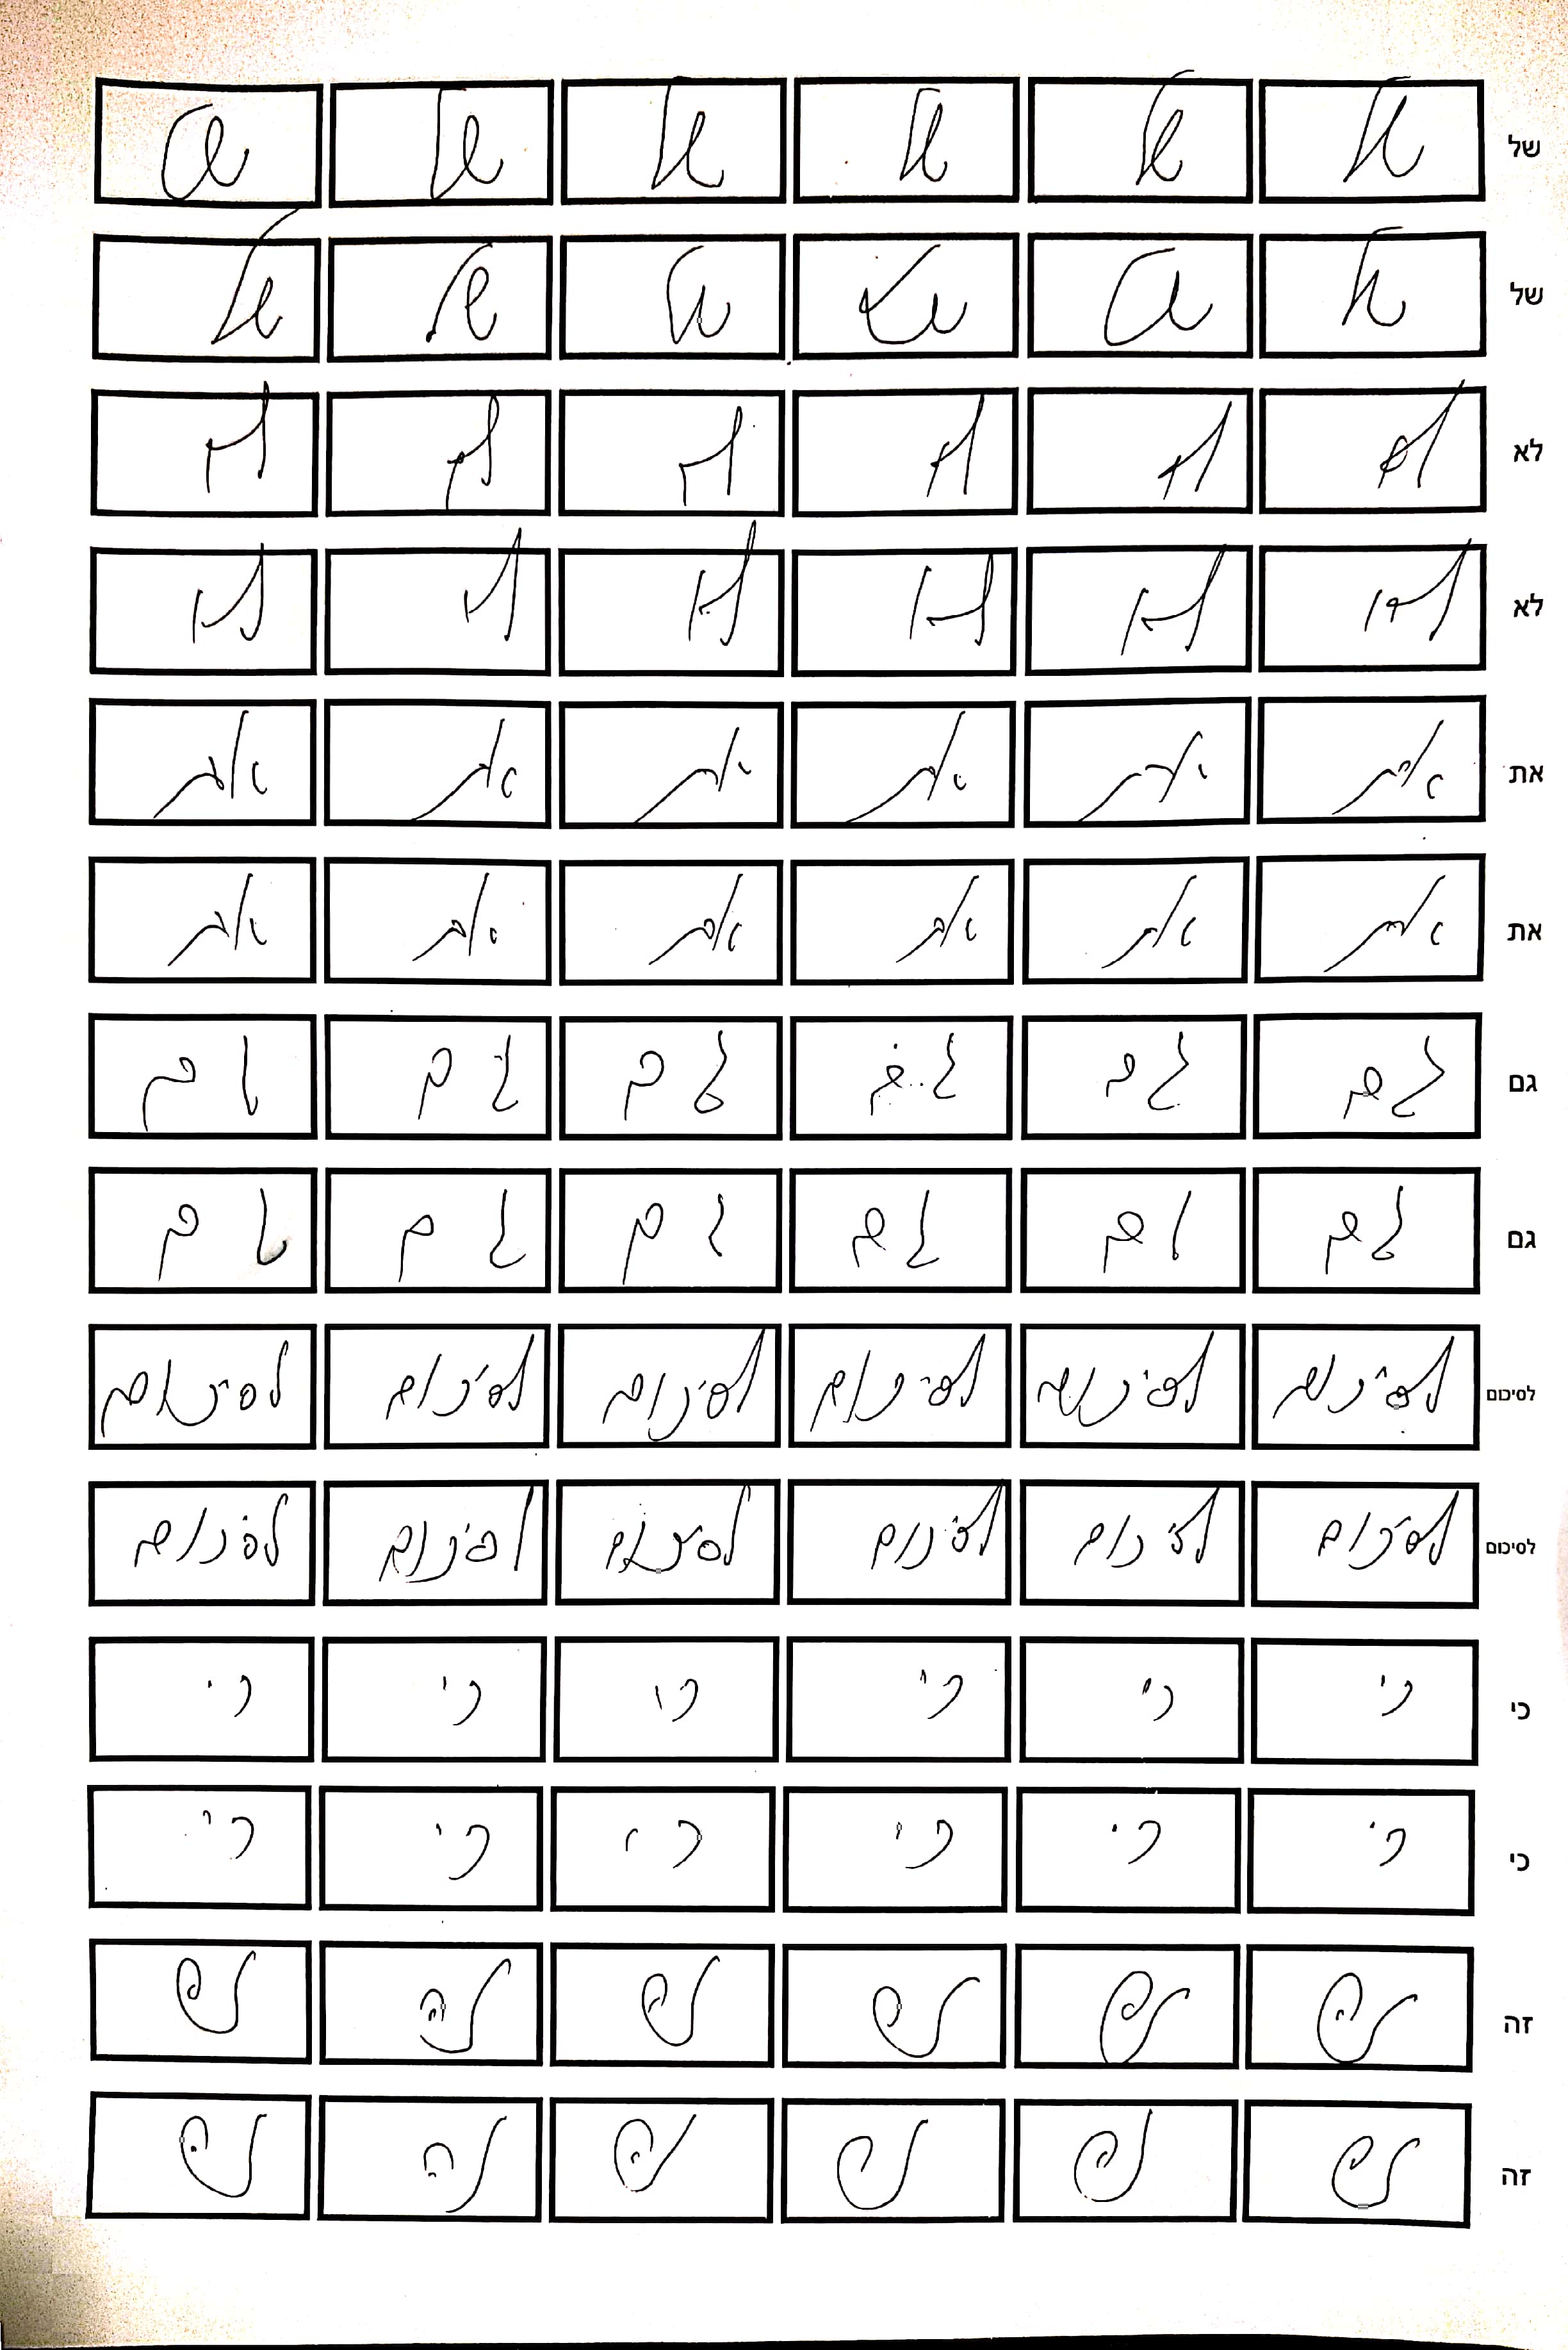 של של של של של של של
של של של של של של של
לא לא לא לא לא לא לא
לא לא לא לא לא לא לא
את את את את את את את
את את את את את את את
גם גם גם גם גם גם גם
גם גם גם גם גם גם גם
לסיכום לסיכום לסיכום לסיכום לסיכום לסיכום לסיכום
לסיכום לסיכום לסיכום לסיכום לסיכום לסיכום לסיכום
כי כי כי כי כי כי כי
כי כי כי כי כי כי כי
זה זה זה זה זה זה זה
זה זה זה זה זה זה זה